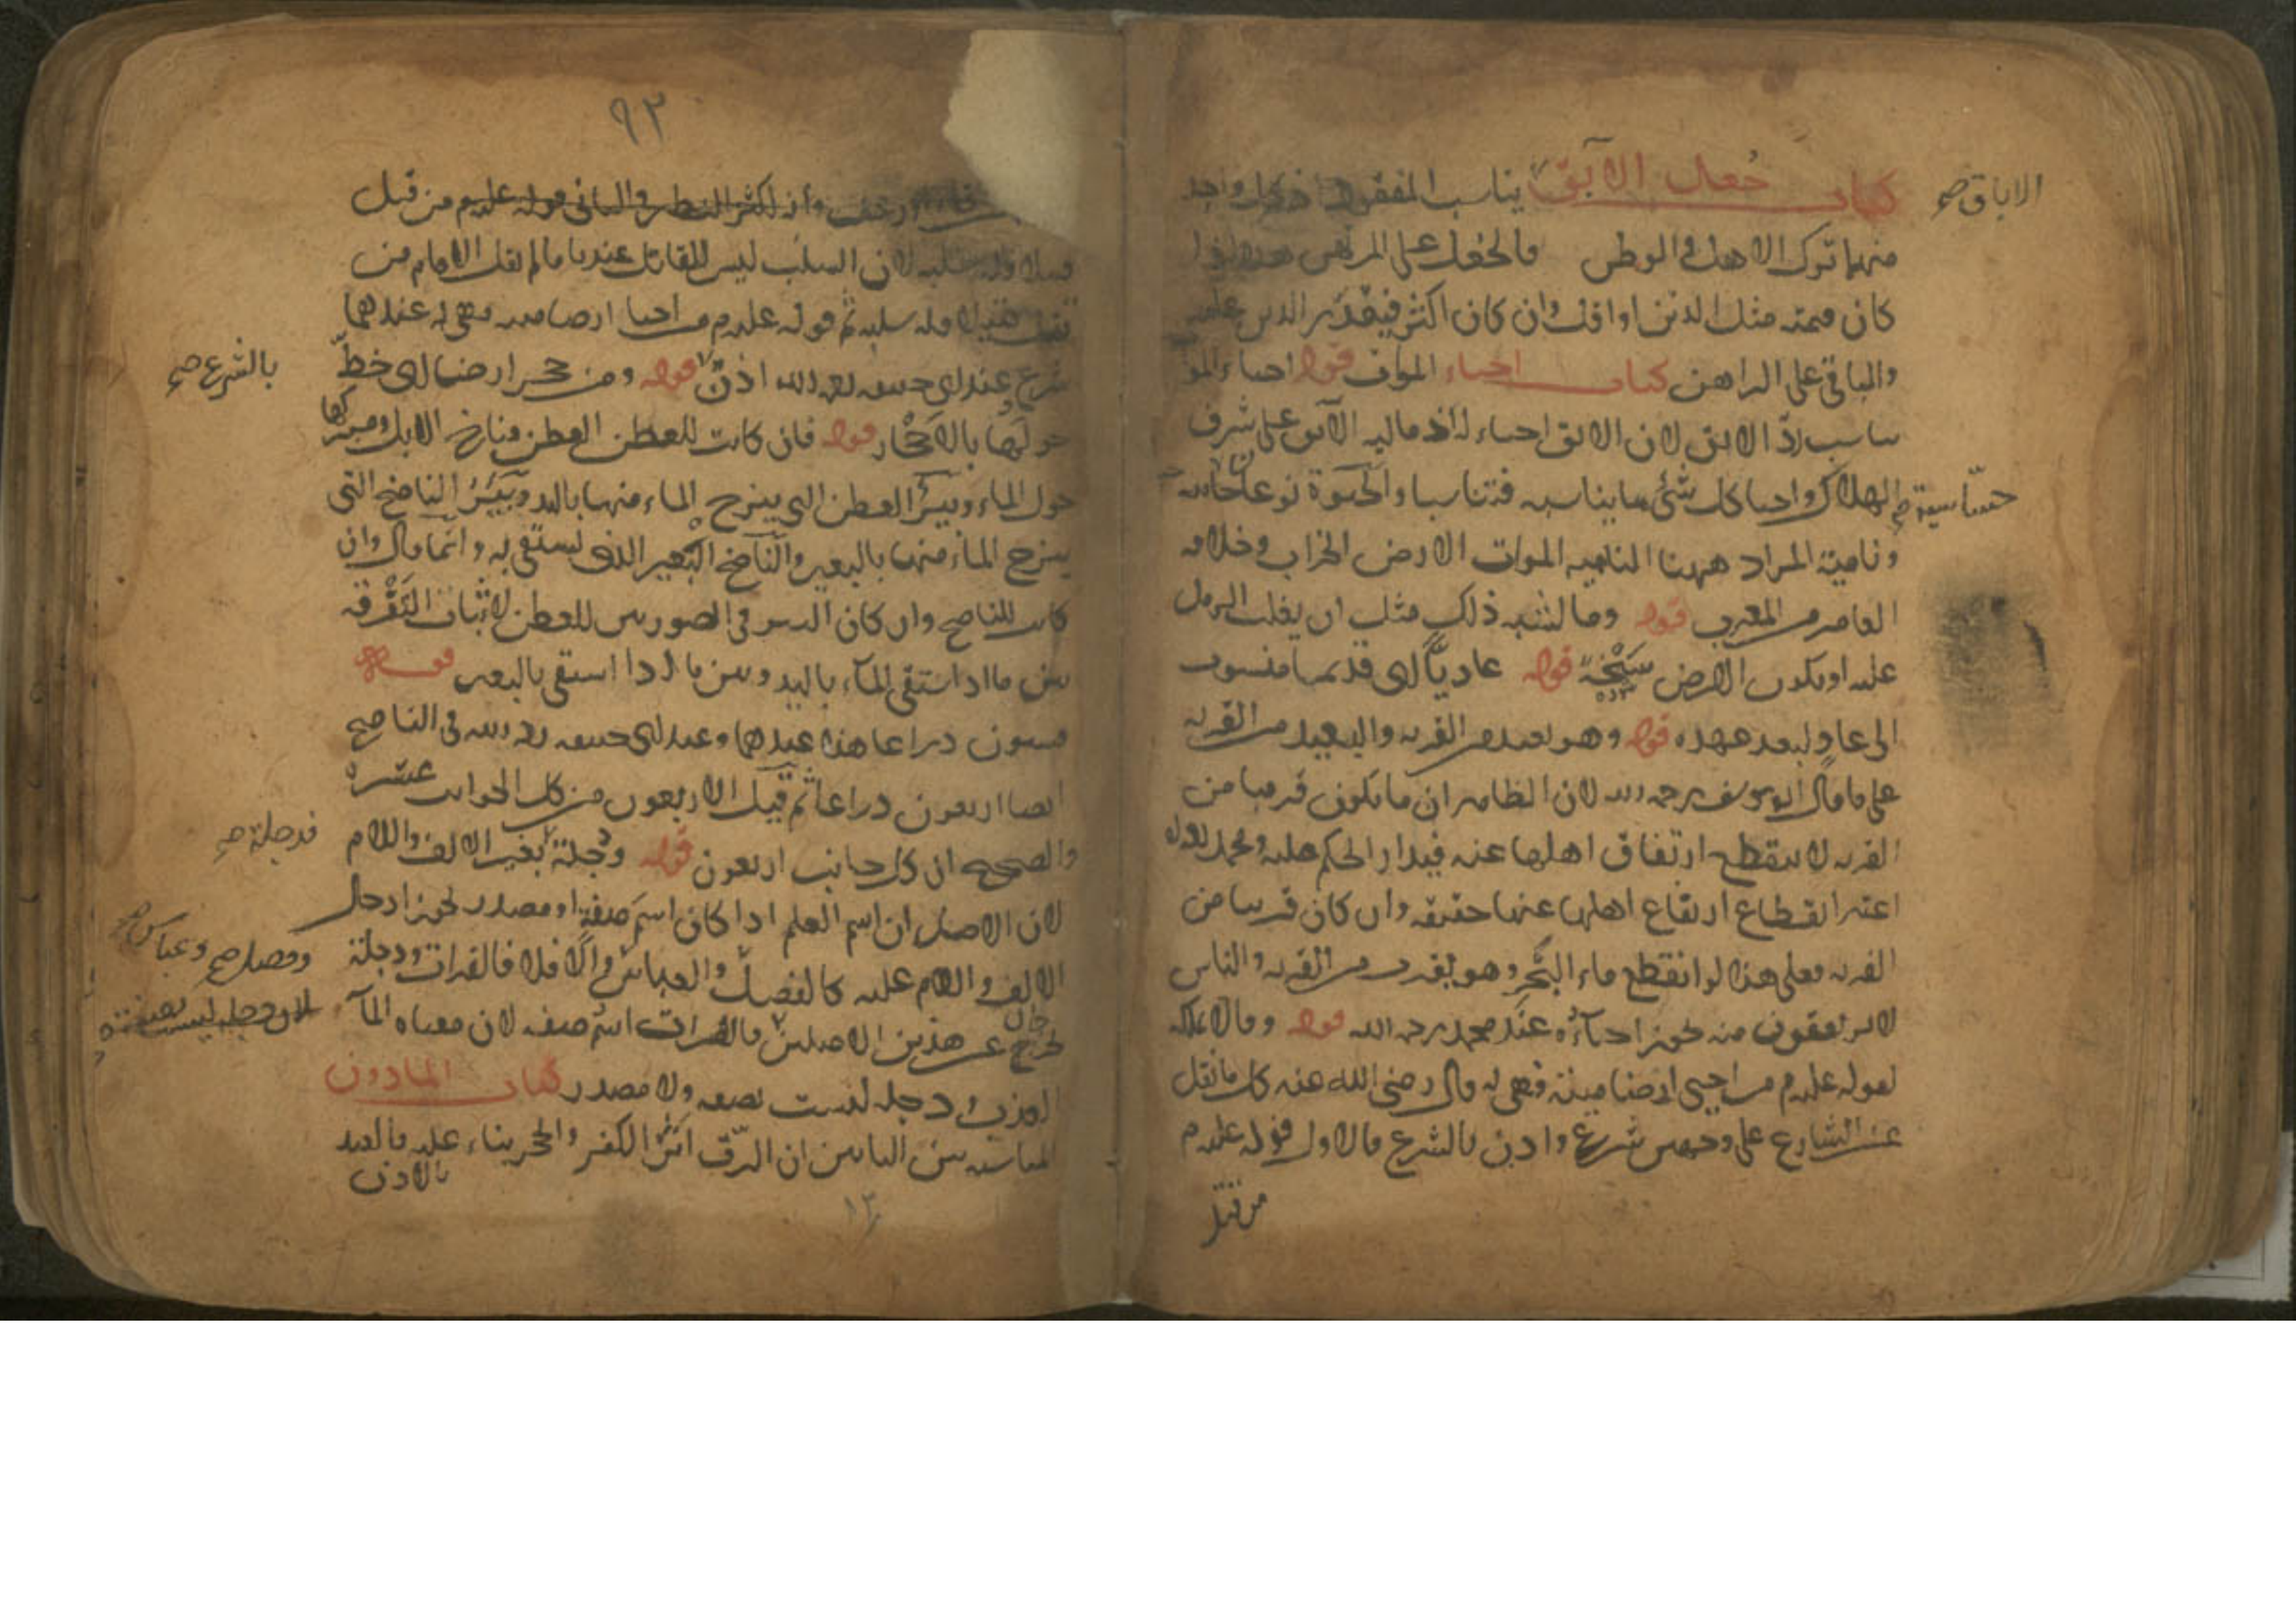 كتاب جعل الآبق يناسب المفقود اذ كل واحد
الاباق صح
منهما ترك الاهل والوطن فالجعل على المرتهن هذا اذا
كان قيمته مثل الدين او اقل وان كان اكثر فيقدر الدين عليه
والباقي على الراهن كتاب احياء الموات قوله احياء الموات
يناسب رد الآبق لان الآبق احياء له اذ مالية الآبق على شرف
الهلاك واحيا كل شيء بما يناسبه فتناسبا والحيوة نوعان حاسة
حساسية صح
ونامية المراد ههنا النامية الموات الارض الخراب وخلافه
العامر من المغرب قوله وما اشبه ذلك مثل ان يغلب الرمل
عليه او يكون الارض سبخة قوله عاديا اي قديما منسوب
الى عاد لبعد عهده قوله وهو بعيد من القرية والبعيد من القرية
على ما قال ابو يوسف رحمه الله لان الظاهر ان ما يكون قريبا من
القرية لا ينقطع ارتفاق اهلها عنه فيدار الحكم عليه ومحمد رحمه الله
اعتبر انقطاع ارتفاع اهلها عنها حقيقة وان كان قريبا من
القرية فعلى هذا لو انقطع ماء البحر وهو بقرب من القرية والناس
لا يرتفقون منه يجوز احياؤه عند محمد رحمه الله قوله وقالا يملكه
لقوله علیه م من احيى ارضا ميتة فهي له قال رضي الله عنه كل ما نقل
عن الشارع على وجهين شرع واذن بالشرع فالاول قوله عليه م
من قتل
٩٣
وانه اكثر النظر والثاني قوله عليه م من قتل
قتيلا فله سلبه لان السلب ليس للقاتل عندنا ما لم يقل الامام من
قتل قتيلا فله سلبه ثم قوله عليه م من احيا ارضا ميتة فهي له عندهما
شرع عند ابي حنيفة رحمه الله اذن قوله ومن حجر ارضا اي خط
بالشرع صح
حولها بالاحجار قوله فان كانت للعطن العطن مناخ الابل ومبركها
حول الماء وبئر العطن التي ينزح الماء منها باليد وبئر الناضح التي
ينزح الماء منها بالبعير والناضح البعير الذي يستقى به وانما قال وان
كانت للناضح وان كان البئر في الصورتين للعطن لاثبات التفرقة
بين ما اذا استقى الماء باليد وبين ما اذا استقى بالبعير قوله
ستون ذراعا هذا عندهما وعند ابي حنيفة رحمه الله في الناضح
ايضا اربعون ذراعا ثم قيل الاربعون من كل الجوانب عشرة
والصحيح ان كل جانب اربعون قوله ودجلة بغير الالف واللام
فدجلة صح
لان الاصل ان اسم العلم اذا كان اسم صفة او مصدر يجوز ادخال
الالف واللام عليه كالفضل والعباس والا فلا فالفرات ودجلة
وفضل صح وعباس صح
خرج عن هذين الاصلين فالفرات اسم صفة لان معناه الماء
لان دجلة ليست بصفة
العذب ودجلة ليست بصفة ولا مصدر كتاب المأذون
المناسبة بين البابين ان الرق اثر الكفر والحجر بناء عليه فالعبد
بالاذن
١٣